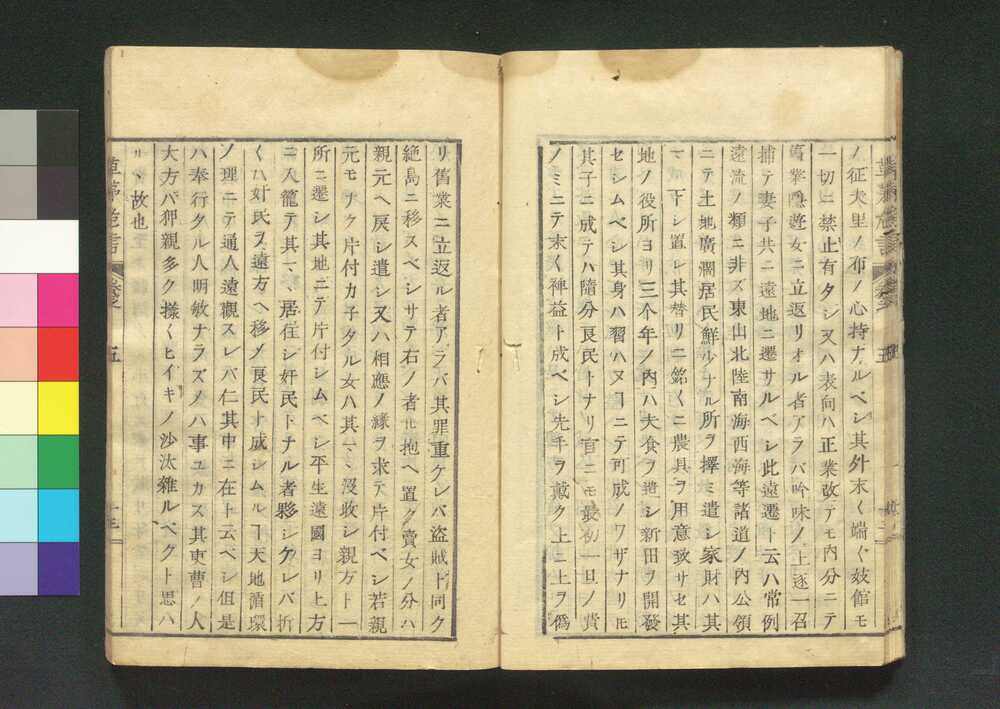 ノ征夫里ノ布ノ心持ナルベシ其外末〱端〱妓館モ
一切ニ禁止有タシ又ハ表向ハ正業改テモ内分ニテ
舊業隱遊女ニ立返リオル者アラバ吟味ノ上逐一召
捕テ妻子共ニ遠地ニ遷サルベシ此遠遷ト云ハ常例
遠流ノ類ニ非ズ東山北陸南海西海等諸道ノ内公領
ニテ土地廣濶居民鮮少ナル所ヲ擇ミ遣シ家財ハ其
マヽ下シ置レ其替リニ銘〱ニ農具ヲ用意致サセ其
地ノ役所ヨリ三个年ノ内ハ夫食ヲ
シ新田ヲ開發
セシムベシ其身ハ習ハヌヿニテ可成ノワザナリ𪜈
其子ニ成テハ隨分良民トナリ官ニモ最初一旦ノ費
ノミニテ末〱裨益ト成ベシ先手ヲ戴ク上ニ上ヲ僞
リ舊業ニ立返ル者アラバ其罪重ケレバ盜賊ト同ク
絶島ニ移スベシサテ右ノ者𪜈抱ヘ置ク賣女ノ分ハ
親元ヘ戻シ遣シ又ハ相應ノ縁ヲ求テ片付ベシ若親
元モナク片付カ子タル女ハ其マヽ沒收シ親方ト一
所ニ遷シ其地ニテ片付シムベシ平生遠國ヨリ上方
ニ入籠テ其マヽ居住シ奸民トナル者夥シケレバ折
〱ハ奸民ヲ遠方ヘ移メ良民ト成シムルヿ天地循環
ノ理ニテ通人遠觀スレバ仁其中ニ在ト云ベシ但是
ハ奉行タル人明敏ナラズメハ事ユカス其吏曹ノ人
大方バ狎親多ク樣〱ヒイキノ沙汰雜ルベクト思ハ
ルヽ故也
草茅危言
五